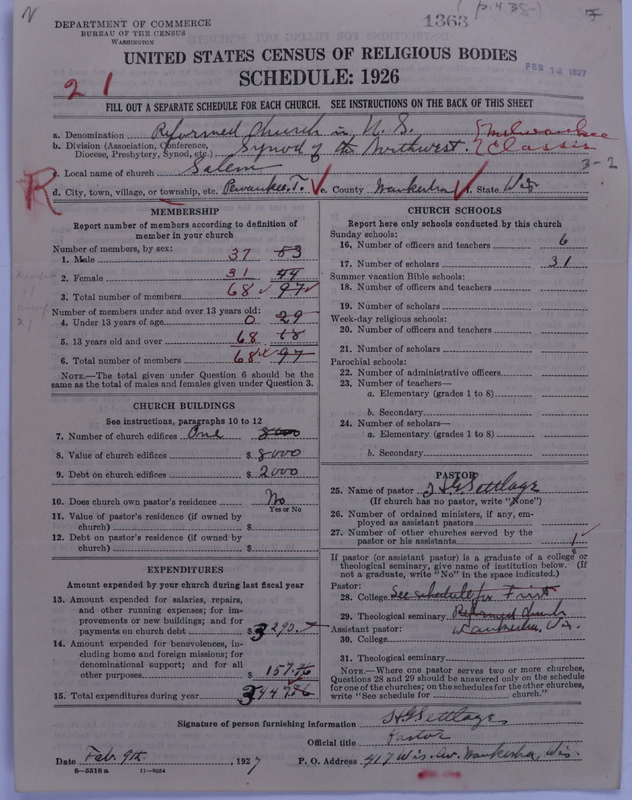 DEPARTMENT OF COMMERCE
BUREAU OF THE CENSUS
WASHINGTON
1363
p. 438
UNITED STATES CENSUS OF RELIGIOUS BODIES
SCHEDULE: 1926
FEB 12 1927
21
FILL OUT A SEPARATE SCHEDULE FOR EACH CHURCH. SEE INSTRUCTIONS ON THE BACK OF THIS SHEET
a. Denomination Reformed Church in U. S.
b. Division (Association, Conference, Diocese, Presbytery, Synod, etc.) Synod of the Northwest. Milwaukee Classis
c. Local name of church Salem
3-2
R
d. City, town, village, or township, etc. Pewaukee T. e. County Waukesha f. State Wis
MEMBERSHIP
Report number of members according to definition of member in your church
Number of members, by sex:
1. Male 37 53
2. Female 31 44
3. Total number of members 68 97
Number of members under and over 13 years old:
4. Under 13 years of age 0 29
5. 13 years old and over 68 68
6. Total number of members 68 97
NOTE.—The total given under Question 6 should be the same as the total of males and females given under Question 3.
CHURCH BUILDINGS
See instructions, paragraphs 10 to 12
7. Number of church edifices One 8000
8. Value of church edifices $ 8000
9. Debt on church edifices $ 2000
10. Does church own pastor's residence No
Yes or No
11. Value of pastor's residence (if owned by church) $
12. Debt on pastor's residence (if owned by church) $
EXPENDITURES
Amount expended by church during last fiscal year
13. Amount expended for salaries, repairs, and other running expenses; for improvements or new buildings; and for payments on church debt $ 3290.
14. Amount expended for benevolences, including home and foreign missions; for denominational support; and for all other purposes $ 157.56
15. Total expenditures during year $ 3447.56
CHURCH SCHOOLS
Report here only schools conducted by this church
Sunday schools:
16. Number of officers and teachers 6
17. Number of scholars 31
Summer vacation Bible schools:
18. Number of officers and teachers
19. Number of scholars
Week-day religious schools:
20. Number of officers and teachers
21. Number of scholars
Parochial schools:
22. Number of administrative officers
23. Number of teachers—
a. Elementary (grades 1 to 8)
b. Secondary
24. Number of scholars—
a. Elementary (grades 1 to 8)
b. Secondary
PASTOR
25. Name of pastor H G Settlage
(If church has no pastor, write "None")
26. Number of ordained ministers, if any, employed as assistant pastors
27. Number of other churches served by the pastor or his assistants 1
If pastor (or assistant pastor) is a graduate of a college or theological seminary, give name of institution below. (If not a graduate, write "No" in the space indicated.)
Pastor:
28. College See schedule for First
29. Theological seminary Reformed Church
Assistant pastor: Waukesha, Wis.
30. College
31. Theological seminary
NOTE.—Where one pastor serves two or more churches, Questions 28 and 29 should be answered only on the schedule for one of the churches; on the schedules for the other churches, write "See schedule for church."
Signature of person furnishing information H G Settlage
Official title Pastor
Date Feb. 9th., 1927 P. O. Address 417 Wis. Av. Waukesha, Wis.
8—5518a 11—9054